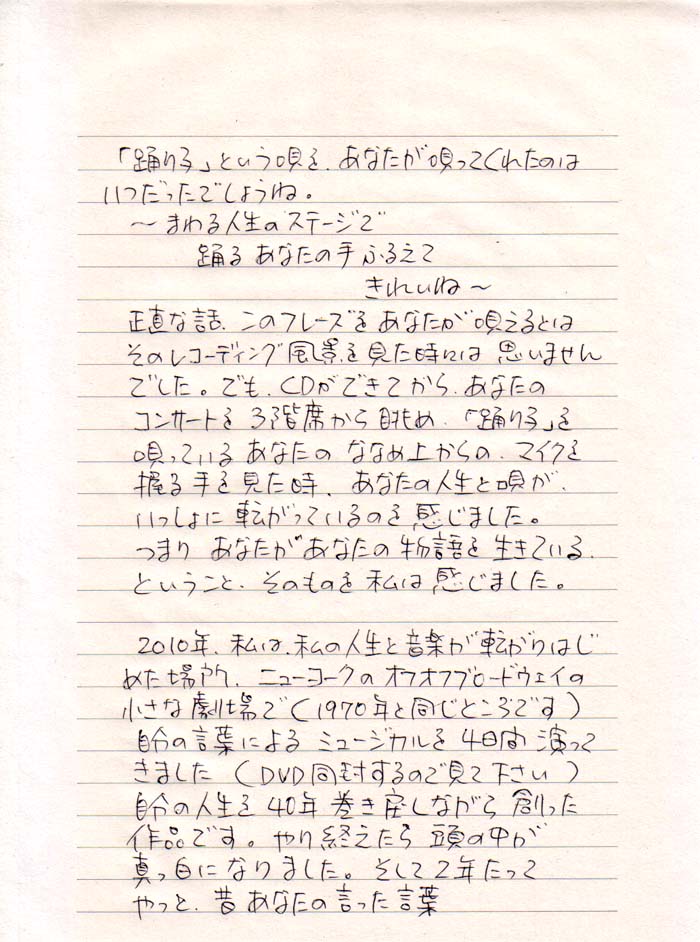 「踊り子」という唄を、あなたが唄ってくれたのは
いつだったでしょうね。
〜まわる人生のステージで
踊るあなたの手ふるえて
きれいね〜
正直な話、このフレーズをあなたが唄えるとは
そのレコーディング風景を見た時には思いません
でした。でも、CDができてから、あなたの
コンサートを3階席から眺め、「踊り子」を
唄っているあなたのななめ上からの、マイクを
握る手を見た時、あなたの人生と唄が、
いっしょに転がっているのを感じました。
つまりあなたがあなたの物語を生きている、
ということ、そのものを私は感じました。
2010年、私は、私の人生と音楽が転がりはじ
めた場所、ニューヨークのオフオフブロードウェイの
小さな劇場で(1970年と同じところです)
自分の言葉によるミュージカルを4日間演って
きました(DVD同封するので見て下さい)
自分の人生を40年巻き戻しながら創った
作品です。やり終えたら頭の中が
真っ白になりました。そして2年たって
やっと、昔あなたの言った言葉